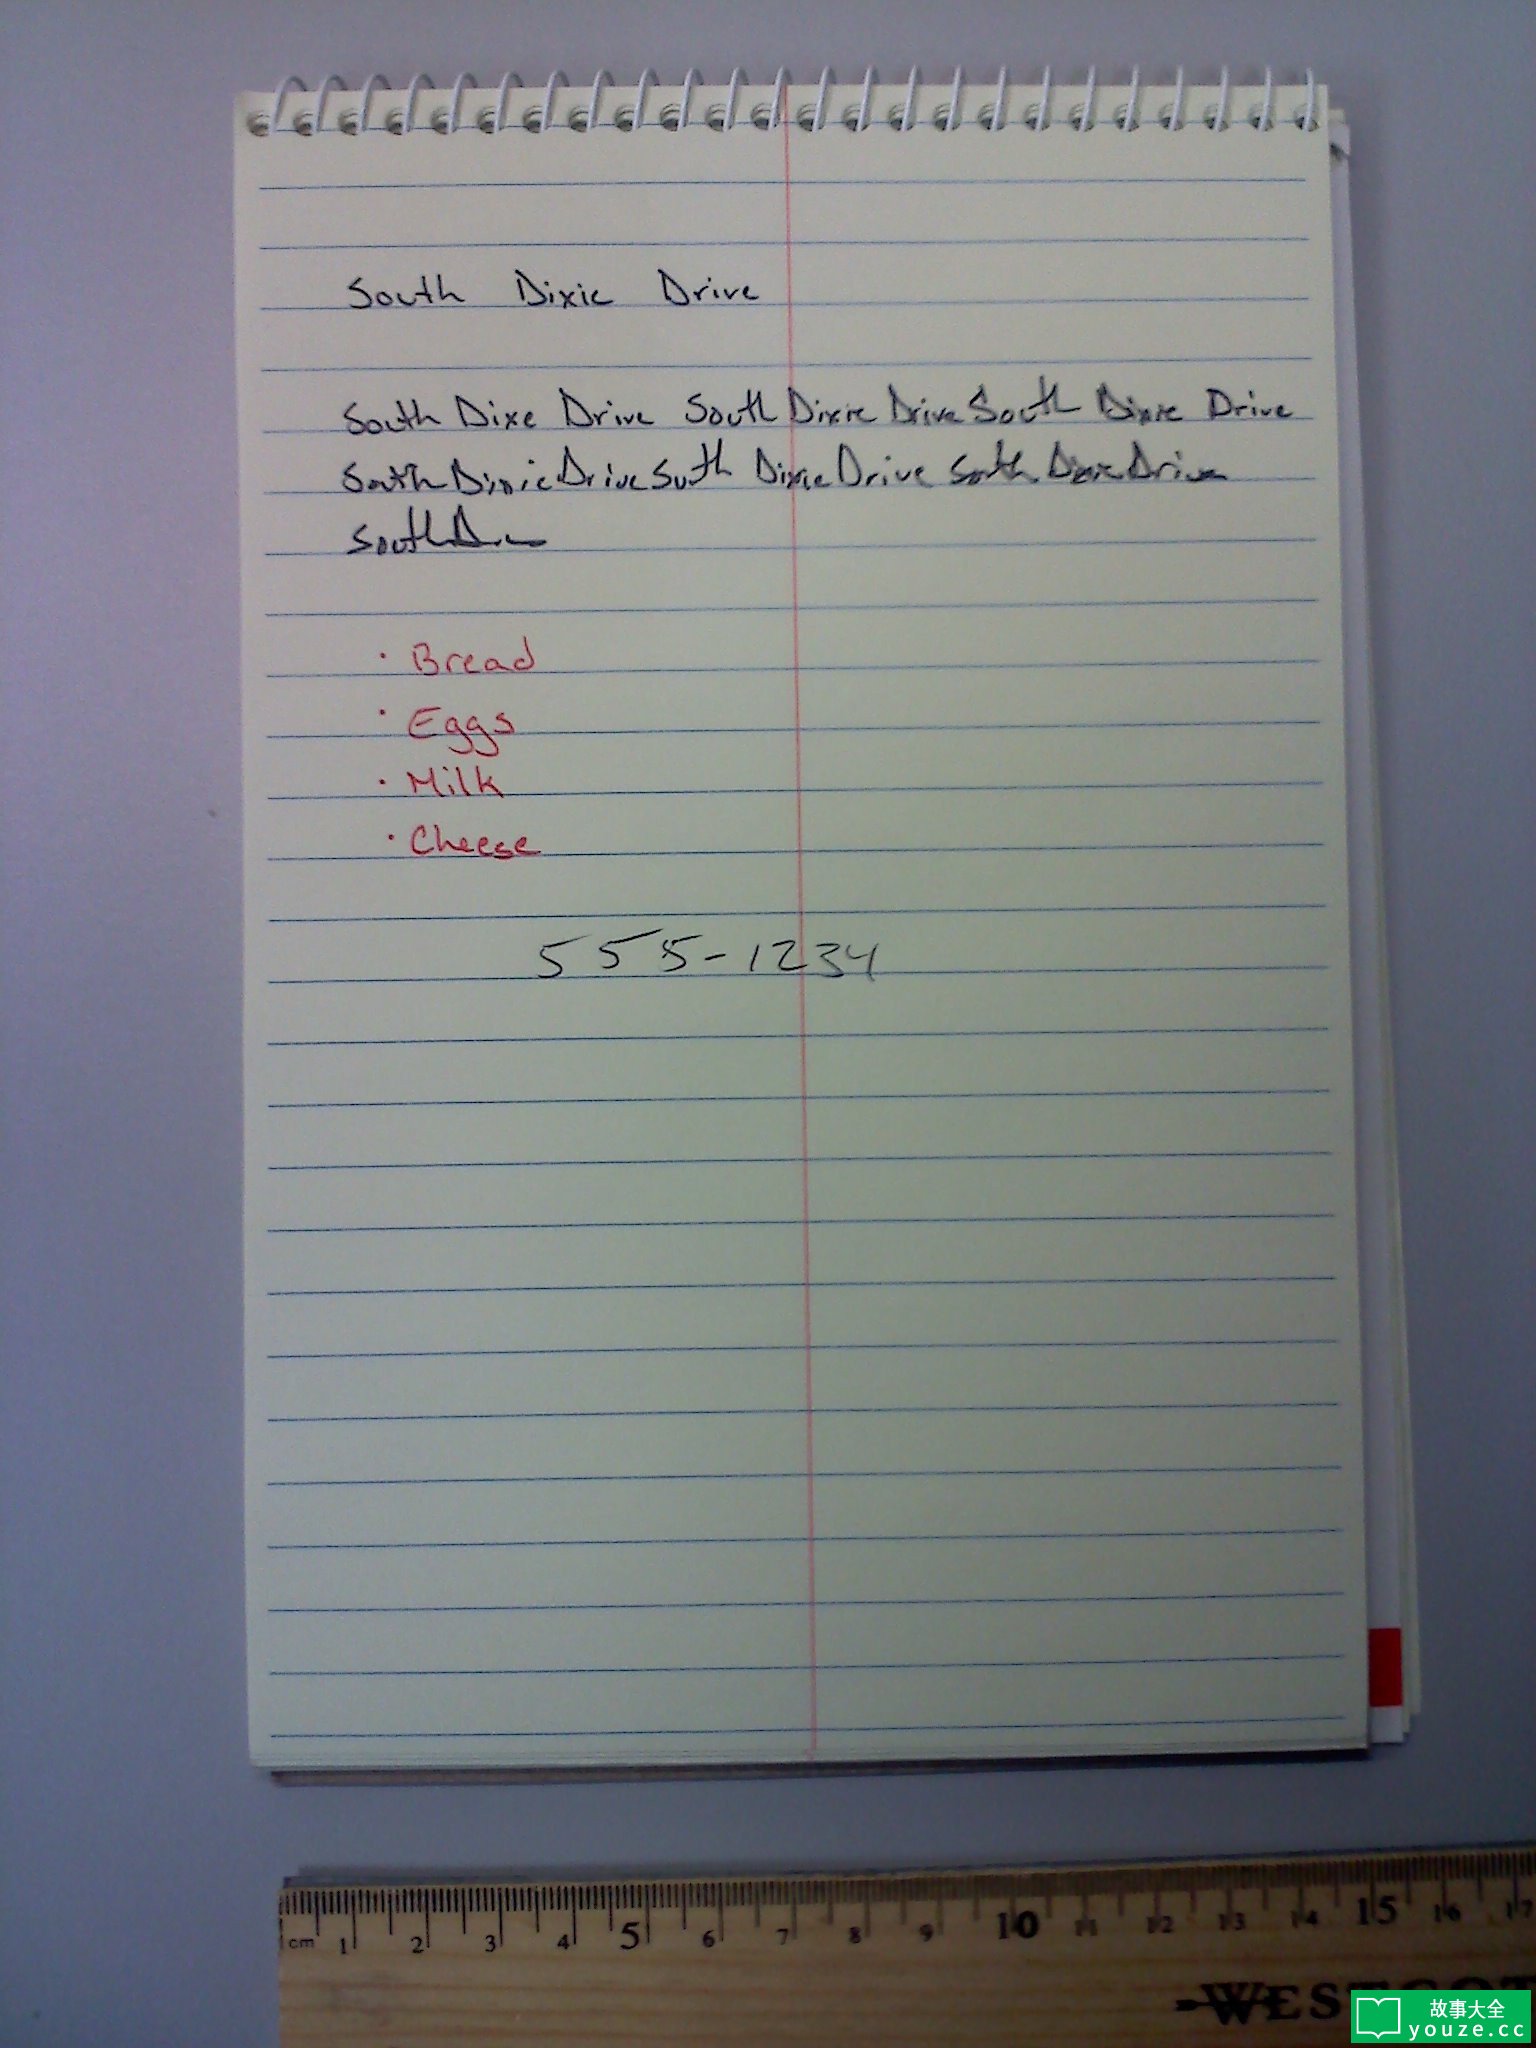 South Dixie Drive
South Dixe Drive South Dixie Drive South Dixie Drive
South Dixie Drive South Dixie Drive South Dixie Drive
South
· Bread
· Eggs
· Milk
· Cheese
555-1234
cm 1 2 3 4 5 6 7 8 9 10 11 12 13 14 15 16 17
WESTCOT
故事大全
youze.cc